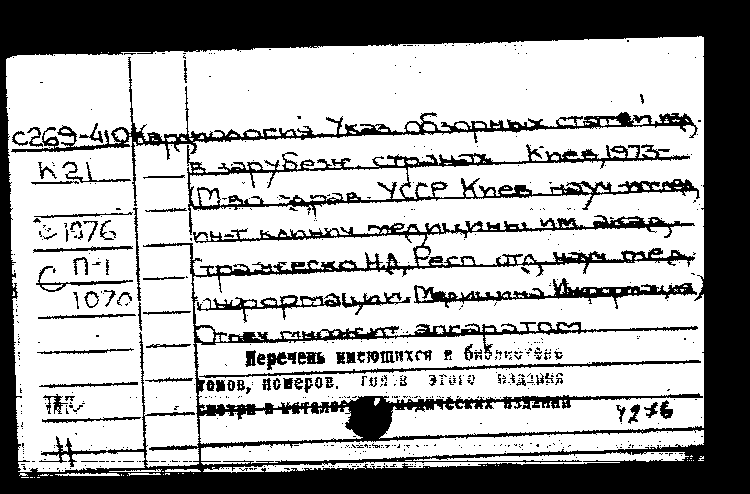 С269-410 Кардиология. Указ. обзорных статей, изд.
К21 в зарубеж. странах. Киев, 1973-
(М-во здрав. УССР. Киев. науч-исслед.
с 1976 ин-т клинич. медицины им. акад.
С П-1 Стражеско Н.Д. Респ. отд. науч. мед.
1070 информации. Медицина. Информация)
Отпеч. множит. аппаратом
Перечень имеющихся в библиотеке
томов, номеров, годов этого издания
смотри в каталоге периодических изданий
4276